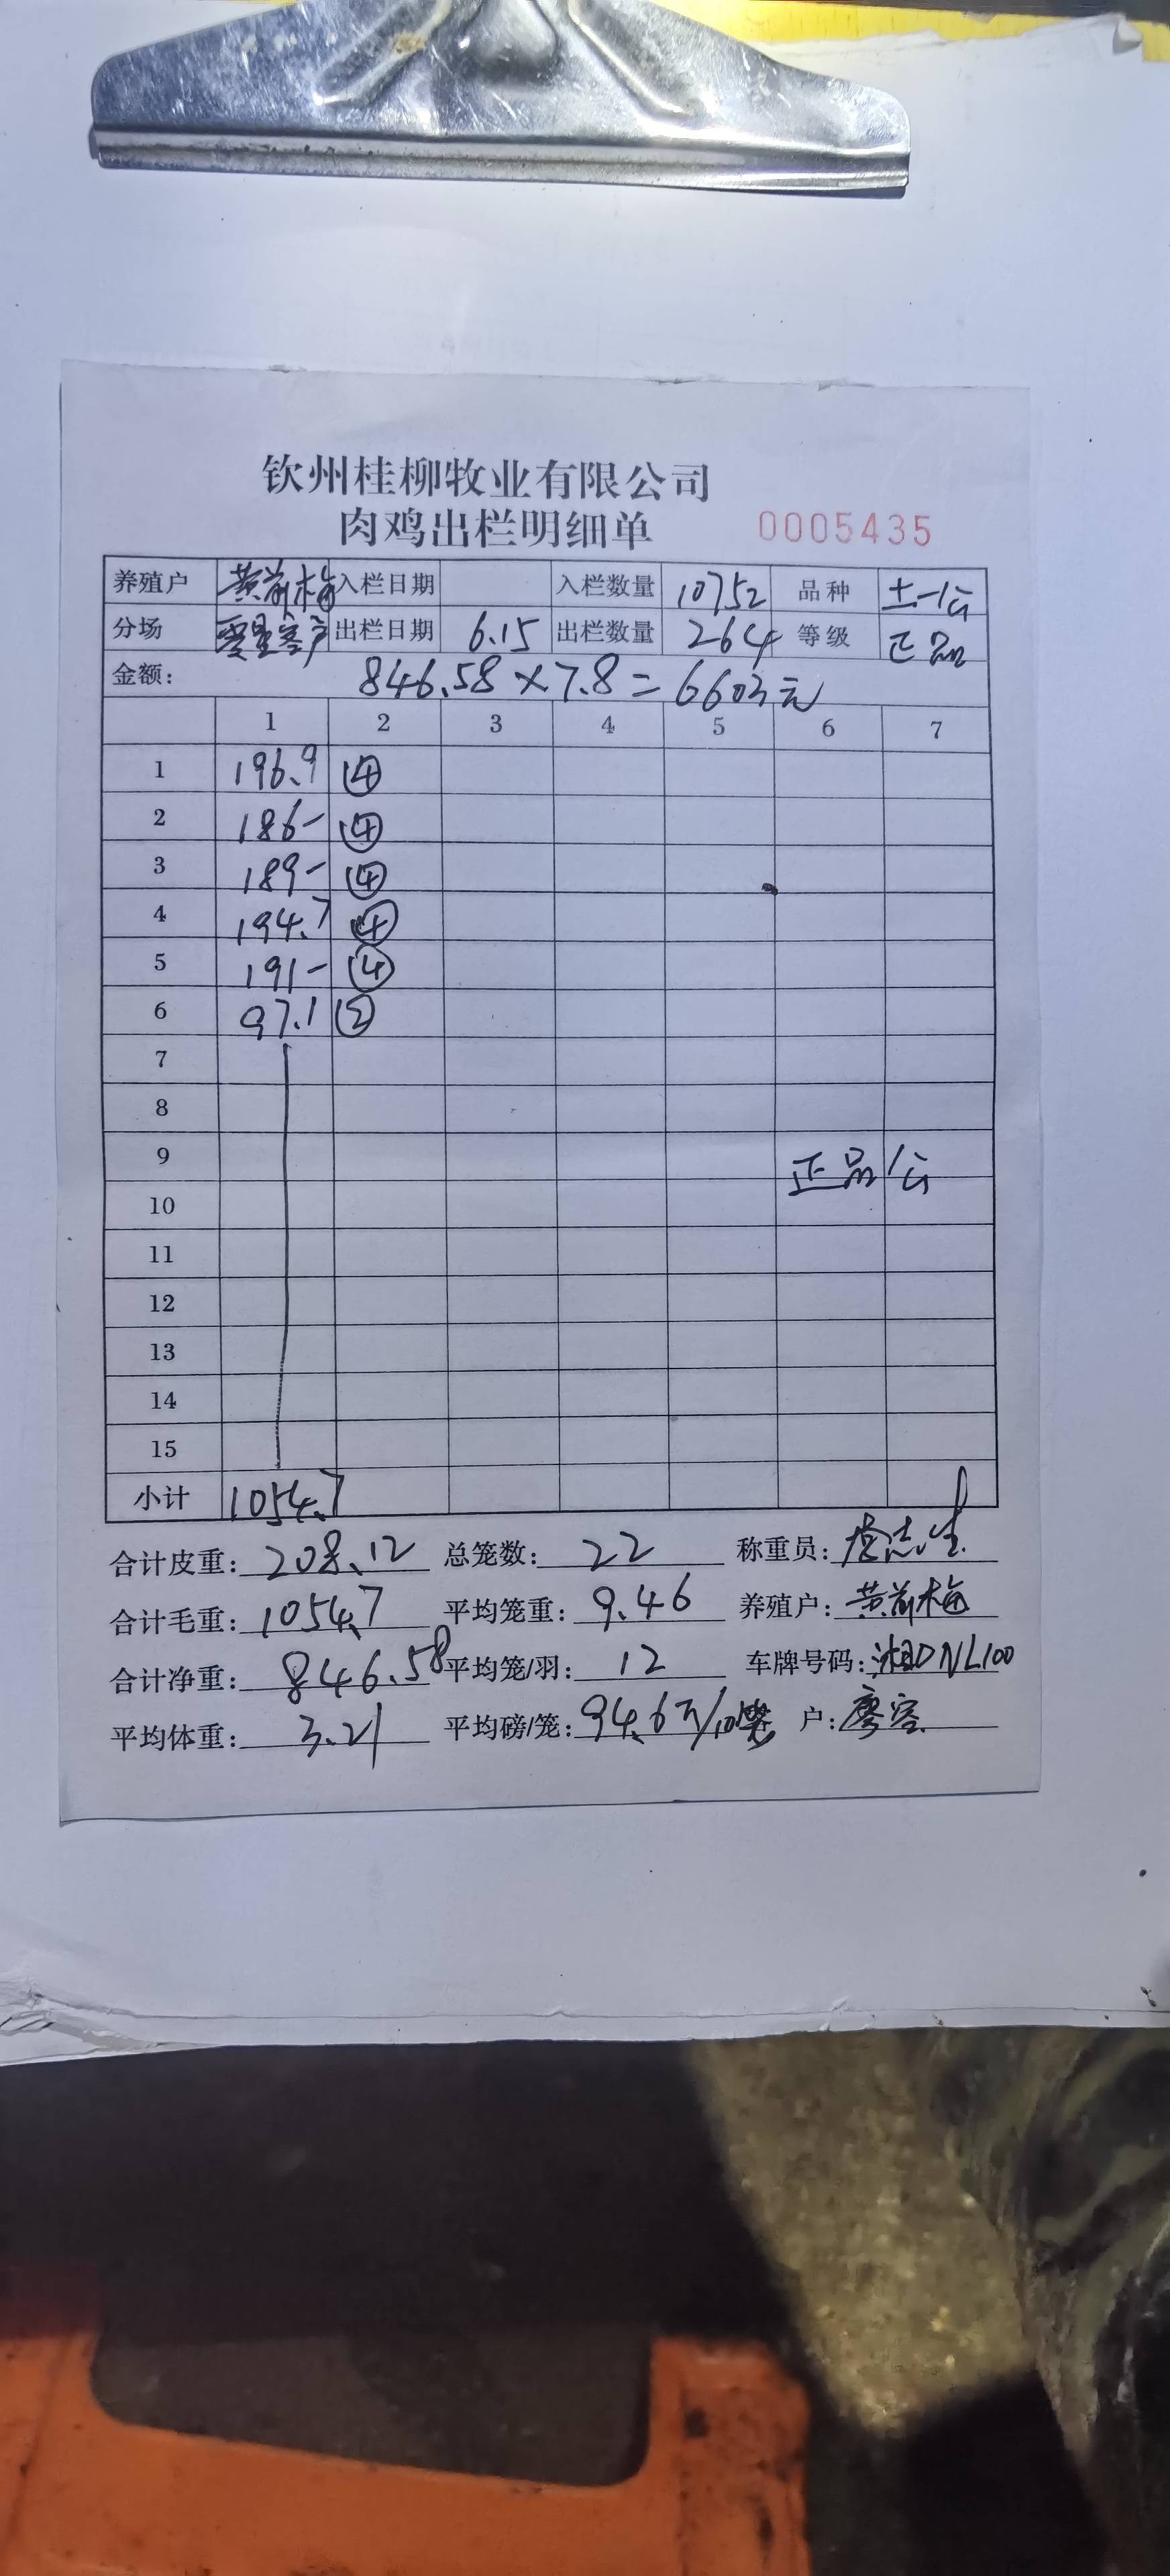 钦州桂柳牧业有限公司
肉鸡出栏明细单 0005435
养殖户 黄前梅 入栏日期 入栏数量 10752 品种 土一公
分场 零星客户 出栏日期 6.15 出栏数量 264 等级 正品
金额: 846.58×7.8=6603元
1 2 3 4 5 6 7
1 196.9 ④
2 186- ④
3 189- ④
4 194.7 ④
5 191- ④
6 97.1 ②
7
8
9 正品公
10
11
12
13
14
15
小计 1054.7
合计皮重: 208.12 总笼数: 22 称重员:
合计毛重: 1054.7 平均笼重: 9.46 养殖户: 黄前梅
合计净重: 846.58 平均笼/羽: 12 车牌号码: 湘DNL100
平均体重: 3.21 平均磅/笼: 94.6斤/10 户: 廖容